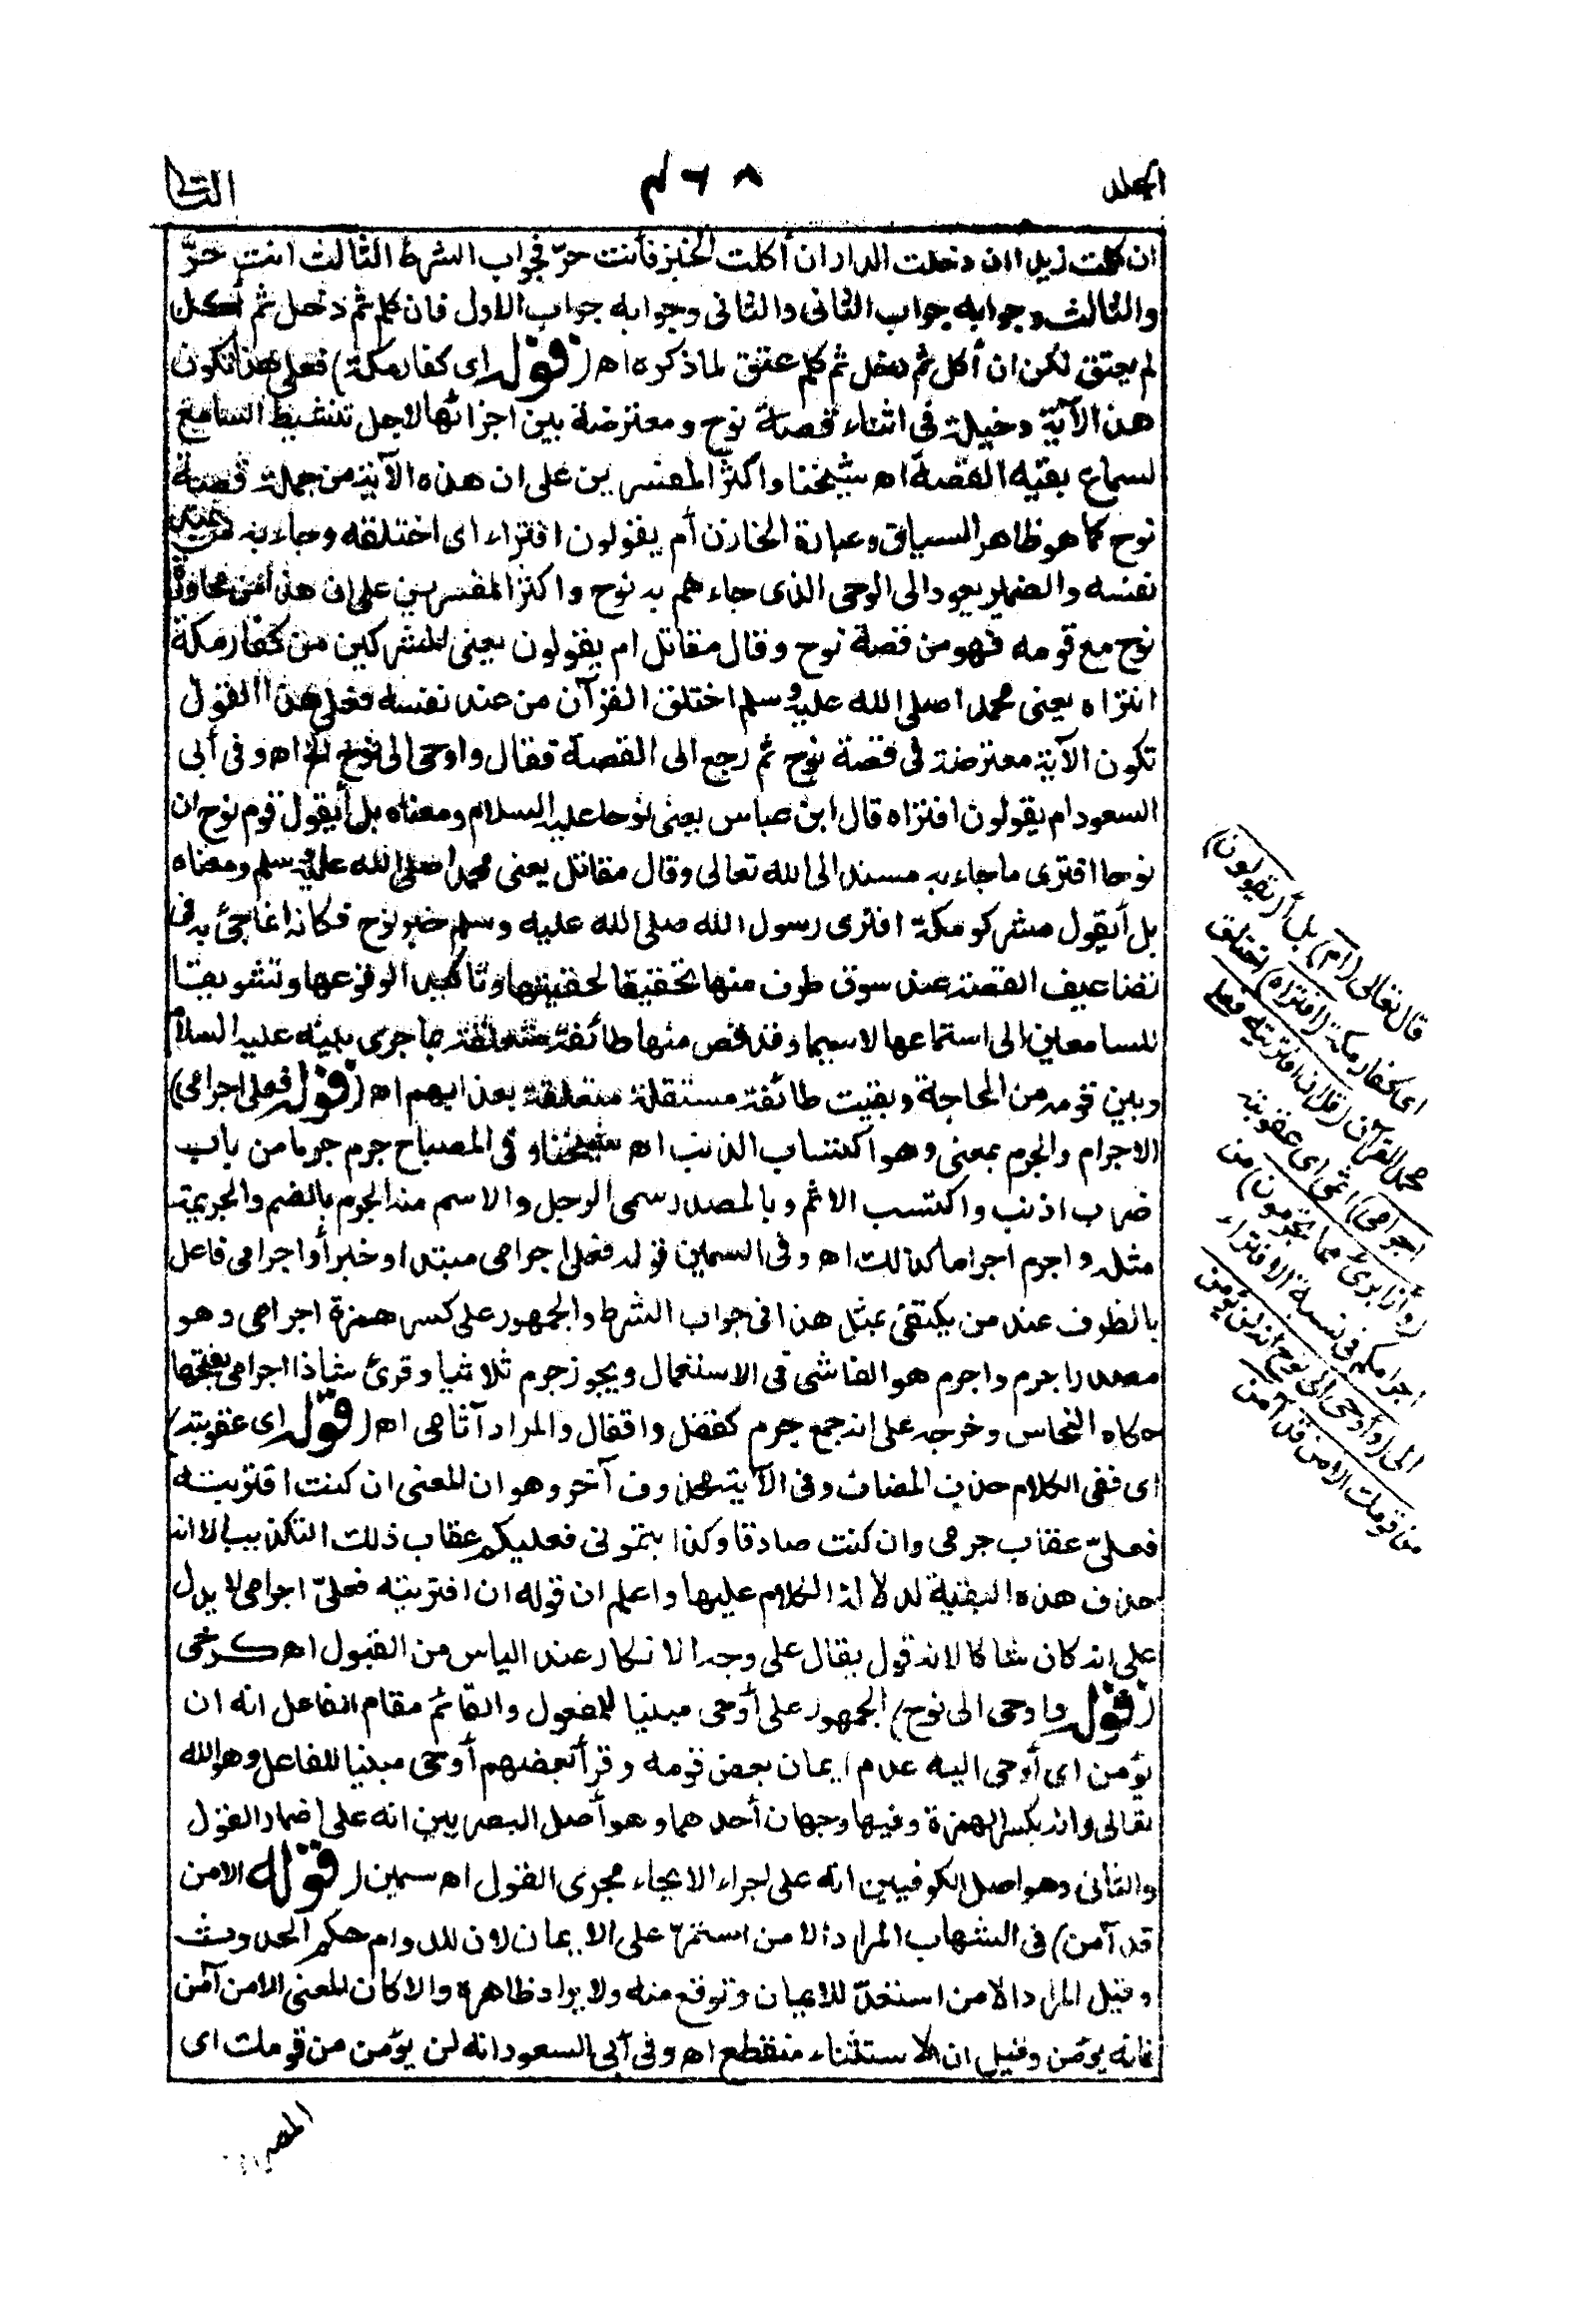 المجلد
٤٦٨
الثانى
ان كلمت زيدا ان دخلت الدار ان أكلت الخبز فأنت حرّ فجواب الشرط الثالث انت حرّ
والثالث وجوابه جواب الثانى والثانى وجوابه جواب الاول فان كلم ثم دخل ثم أكل
لم يعتق لكن ان أكل ثم دخل ثم كلم عتق لما ذكره اه (قوله اى كفار مكة) فعلى هذا تكون
هذه الآية دخيلة فى اثناء قصة نوح ومعترضة بين اجزائها لاجل تنشيط السامع
لسماع بقية القصة اه شيخنا واكثر المفسرين على ان هذه الآية من جملة قصة
نوح كما هو ظاهر السياق وعبارة الخازن أم يقولون افتراه اى اختلقه وجاء به من عند
نفسه والضمير يعود الى الوحى الذى جاءهم به نوح واكثر المفسرين على ان هذا من محاورة
نوح مع قومه فهو من قصة نوح وقال مقاتل ام يقولون يعنى المشركين من كفار مكة
افتراه يعنى محمدا صلى الله عليه وسلم اختلق القرآن من عند نفسه فعلى هذا القول
تكون الآية معترضة فى قصة نوح ثم رجع الى القصة فقال واوحى الى نوح الخ اه وفى أبى
السعود ام يقولون افتراه قال ابن عباس يعنى نوحا عليه السلام ومعناه بل أيقول قوم نوح ان
نوحا افترى ما جاء به مسندا الى الله تعالى وقال مقاتل يعنى محمدا صلى الله عليه وسلم ومعناه
بل أيقول مشركو مكة افترى رسول الله صلى الله عليه وسلم خبر نوح فكانه انما جئ به فى
تضاعيف القصة عند سوق طرف منها تحقيقا لحقيتها وتاكيد الوقوعها وتشويقا
للسامعين الى استماعها لاسيما وقد قص منها طائفة متعلقة بما جرى بينه عليه السلام
وبين قومه من المحاجة وبقيت طائفة مستقلة متعلقة بعذابهم اه (قوله فعلى اجرامى)
الاجرام والجرم بمعنى وهو اكتساب الذنب اه شيخنا وفى المصباح جرم جرما من باب
ضرب اذنب واكتسب الاثم وبالمصدر سمى الرجل والاسم منه الجرم بالضم والجريمة
مثله واجرم اجراما كذلك اه وفى السمين قوله فعلى اجرامى مبتدا وخبر أو اجرامى فاعل
بالظرف عند من يكتفى بمثل هذا فى جواب الشرط والجمهور على كسر همزة اجرامى وهو
مصدر اجرم واجرم هو الفاشى فى الاستعمال ويجوز جرم ثلاثيا وقرئ شاذا اجرامى بفتحها
حكاه النحاس وخرجه على انه جمع جرم كقفل واقفال والمراد آثامى اه (قوله اى عقوبته)
اى ففى الكلام حذف المضاف وفى الآية محذوف آخر وهو ان المعنى ان كنت افتريته
فعلىّ عقاب جرمى وان كنت صادقا وكذبتمونى فعليكم عقاب ذلك التكذيب الا انه
حذف هذه البقية لدلالة الكلام عليها واعلم ان قوله ان افتريته فعلىّ اجرامى لا يدل
على انه كان شاكا لانه قول يقال على وجه الانكار عند الياس من القبول اه كرخى
(قوله واوحى الى نوح) الجمهور على أوحى مبنيا للمفعول والقائم مقام الفاعل انه لن
يؤمن اى أوحى اليه عدم ايمان بعض قومه وقرأ بعضهم أوحى مبنيا للفاعل وهو الله
تعالى وانه بكسر الهمزة وفيها وجهان أحدهما وهو أصل البصريين انه على اضمار القول
والثانى وهو اصل الكوفيين انه على اجراء الايحاء مجرى القول اه سمين (قوله الا من
قد آمن) فى الشهاب المراد الا من استمرّ على الايمان لان للدوام حكم الحدوث
وقيل المراد الا من استعدّ للايمان وتوقع منه ولا يراد ظاهره والا كان المعنى الا من آمن
فانه يؤمن وقيل ان الاستثناء منقطع اه وفى أبى السعود انه لن يؤمن من قومك اى
قال تعالى (أم) بل أ (يقولون)
اى كفار مكة (افتراه) اختلق
محمد القرآن (قل ان افتريته فعلى
اجرامى) اثمى اى عقوبته
(وأنا برئ مما تجرمون) من
اجرامكم فى نسبة الافتراء
الى (وأوحى الى نوح انه لن يؤمن
من قومك الا من قد آمن
المصرين